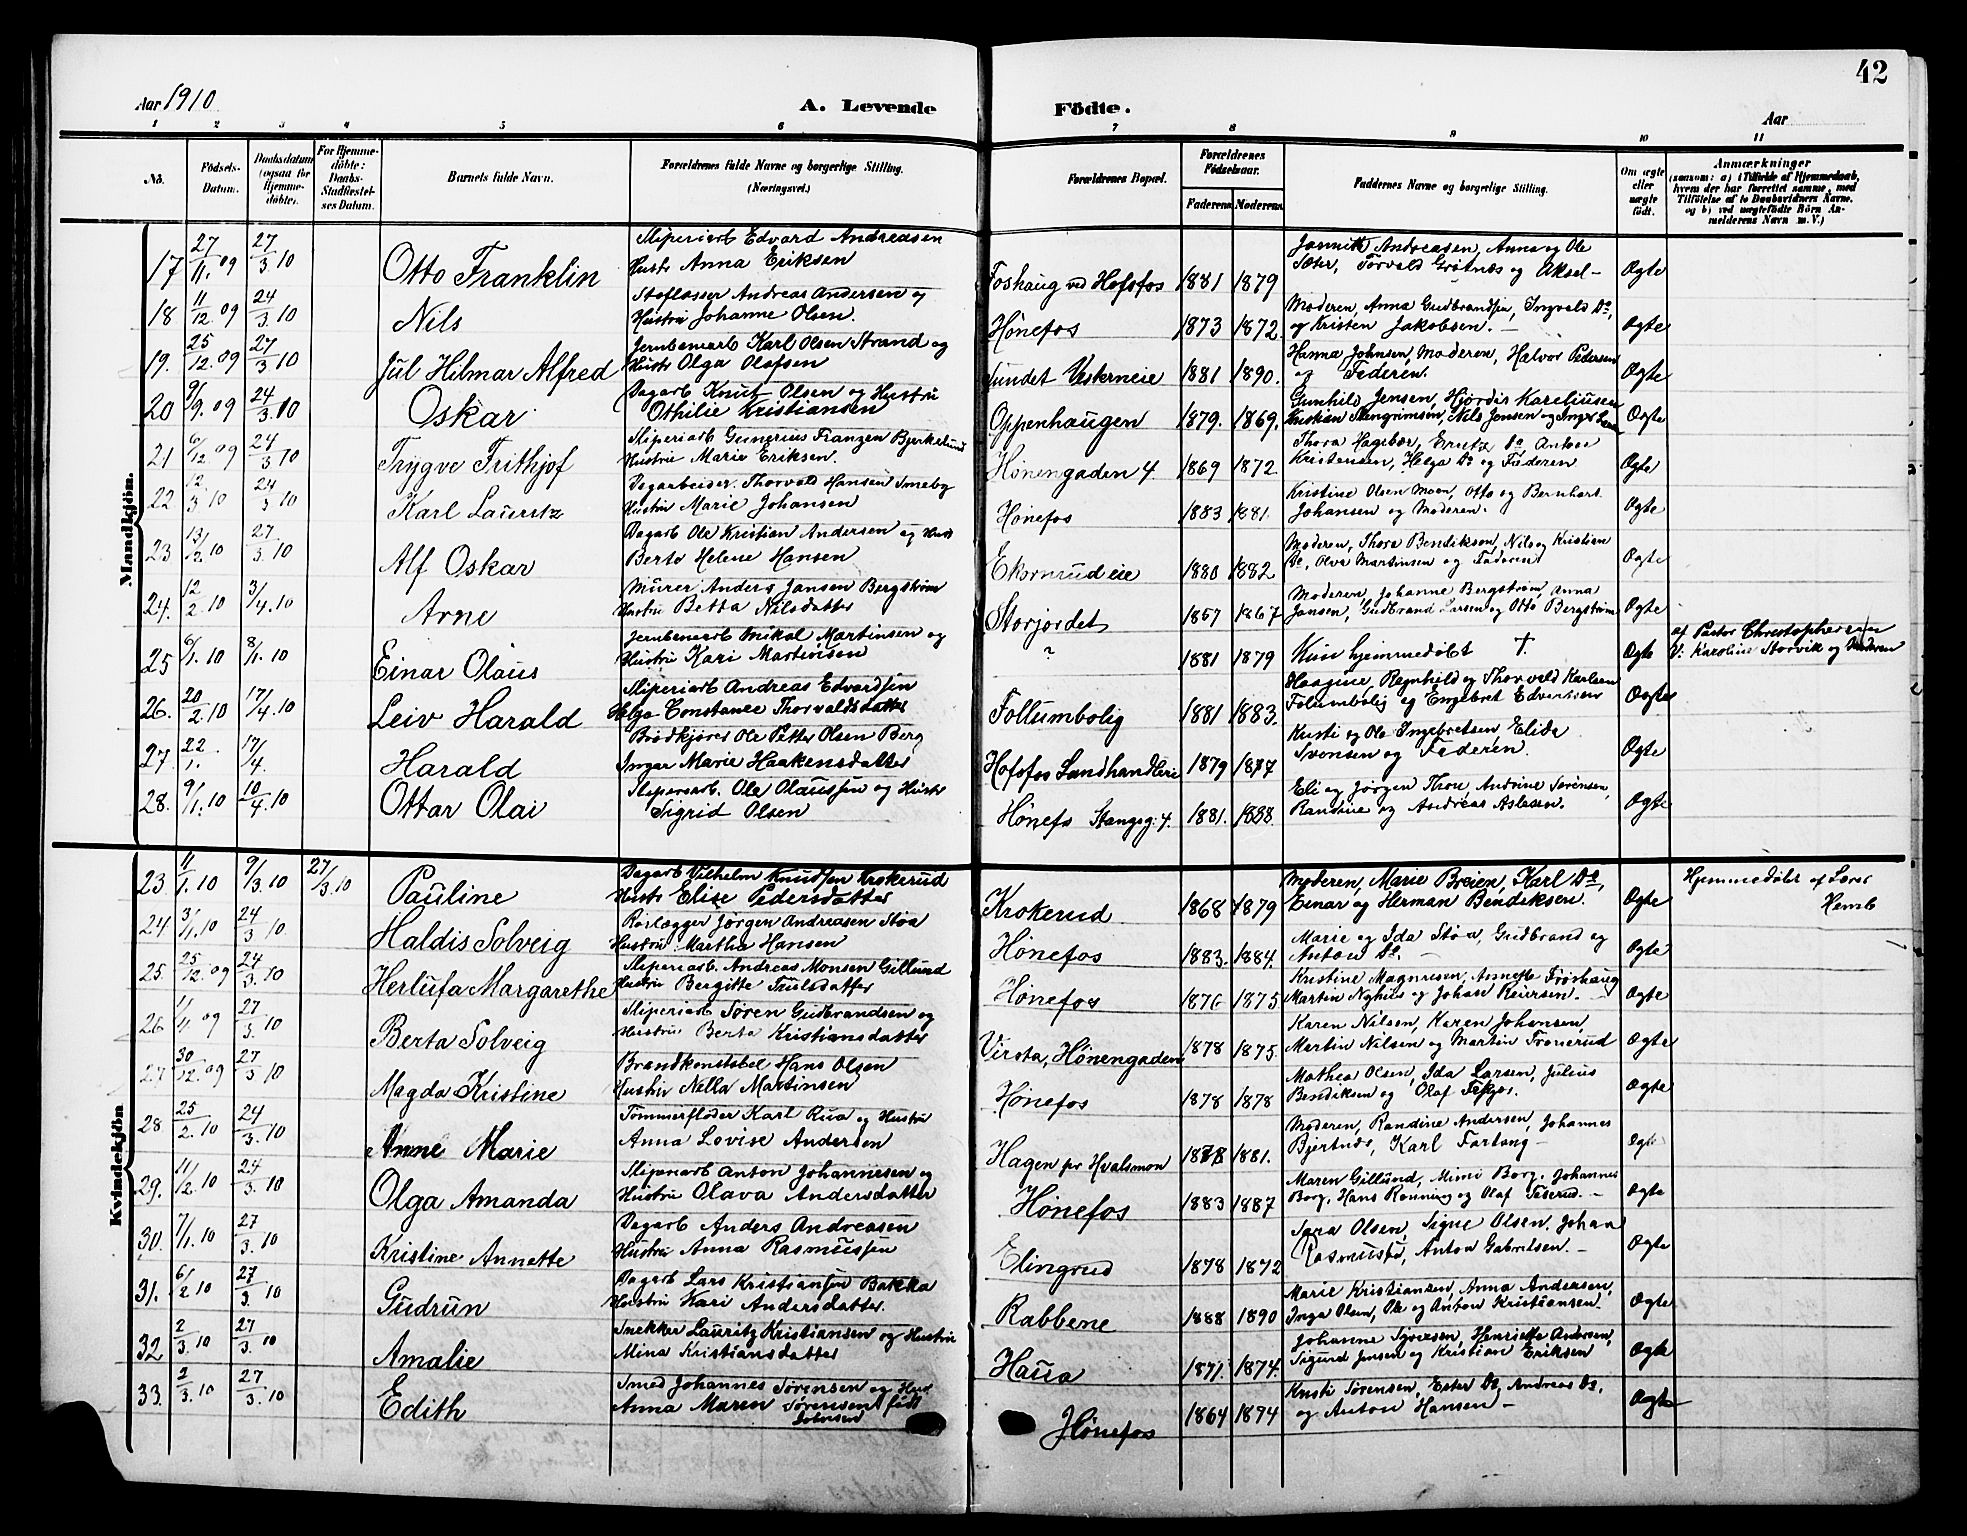 42
Aar 1910.
A. Levende Födte.
Aar
1 2 3 4 5 6 7 8 9 10 11
No.
Födsels-Datum.
Daabsdatum (ogsaa for Hjemme-döbte).
For Hjemme-döbte: Daabs-Stadfæstel-ses Datum.
Barnets fulde Navn.
Forældrenes fulde Navne og borgerlige Stilling. (Næringsvei.)
Forældrenes Bopæl.
Forældrenes Födselsaar.
Faderens Moderens
Faddernes Navne og borgerlige Stilling.
Om ægte eller uægte födt.
Anmærkninger
(saasom: a) i Tilfælde af Hjemmedaab, hvem der har forrettet samme, med Tilföielse af to Daabsvidners Navne, og b) ved uægtefödte Börn Anmelderens Navn m. V.)
Mandkjön.
17 27/11.09 27/3 10 Otto Franklin Sliperiarb Edvard Andreasen Hustr Anna Eriksen Foshaug ved Hofsfos 1881 1879 Andreasen, Anna og Ole Sæter, Torvald Grøtnæs og Aksel – Ægte
18 11/12.09 24/3.10 Nils Andreas Andersen og Hustru Johanne Olsen. Hønefos 1873 1872. Moderen, Anna Gudbrandsen, Ingvald Do, og Kristen Jakobsen. – Ægte
19. 25/12.09 27/3.10 Jul Hilmar Alfred Jernbanearb Karl Olsen Strand og Hustr Olga Olafsen Sundet Veskerneie 1881 1890. Hanna Johnsen, Moderen, Halvor Pedersen og Faderen. Ægte
20 9/9.09 24/3.10 Oskar Dagarb Knut Olsen og Hustru Othilie Kristiansen Oppenhaugen 1879. 1869. Gunhild Jensen, Hjørdis Kareliussen Kristian Stengrimsen, Nils Jensen og Inga Ægte
21 6/12 09 24/3 10 Trygve Frithjof Sliperiarb Gunerius Franzen Bjerkelund Hustru Marie Eriksen. Hønengaden 4. 1869 1872. Thora Hagebær, Do Anton Kristensen, Helga Do og Faderen Ægte
22 12/3 10 24/3 10 Karl Lauritz Dagarbeider. Thorvald Hansen Smeby Hustru Marie Johansen Hønefos 1883 1881. Kristine Olsen Moen, Otto og Bernhart Johansen og Moderen. Ægte
23 13/2 10 27/3.10 Alf Oskar Dagarb Ole Kristian Andersen og Hust Berte Helene Hansen Ekornrudeie 1880 1882 Moderen, Thora Bendikson, Nils og Kristian Do, Olva Martinsen og Faderen Ægte
24. 12/2.10 3/4.10 Arne Murer Anders Jansen Bergstrøm Hustru Betta Nilsdatter Storjordet 1857 1867 Moderen, Johanne Bergstrøm, Anna Jansen, Gudbrand Larsen og Otto Bergstrøm Ægte
25 6/1.10 8/1.10 Einar Olaus Jernbanearb Mikal Martinsen og Hustru Kari Martinsen ? 1881 1879 Kun hjemmedøbt † Ægte af Pastor Christophersen V: Karoline Storvik og Moderen
26. 20/2.10 17/4.10 Leiv Harald Sliperiarb Andreas Edvardsen Helga Constance Thorvaldsdatter Follumbolig 1881 1883. Haagine, Ragnhild og Thorvald Karlsen Folumbolig og Engebret Edvartsen Ægte
27. 22/1. 17/4. Harald Brødkjører Ole Petter Olsen Berg Ingar Marie Haakensdatter Hofsfos Landhandleri 1879 1877 Kristi og Ole Ingebretsen, Elida Svensen og Faderen. Ægte
28. 9/1.10 10/4.10 Ottar Olai Sliperiarb. Ole Olaussen og Hustr Sigrid Olsen Hønefos Stangsg: 4. 1881. 1888. Eli og Jørgen Thon, Andrine Sørensen, Randine og Andreas Aslesen. Ægte
Kvindekjön
23. 11/1.10 9/3.10 27/3.10 Pauline Dagarb Vilhelm Knudsen Krokerud Hustr Elise Pedersdatter Krokerud 1868 1879 Moderen, Marie Breien, Karl Do, Einar og Herman Bendiksen. Ægte Hjemmedøbt af Lærer Hemb
24. 3/1.10 24/3 10 Haldis Solveig Rørlægger Jørgen Andreasen Støa Hustru Martha Hansen Hønefos 1883. 1884. Marie og Ida Støa, Gudbrand og Anton Do. – Ægte
25. 25/12.09 24/3.10 Herlufa Margarethe Sliperiarb. Andreas Monsen Gillund Hustru Bergitte Trulsdatter Hønefos 1876 1875 Kristine Magnusen, Annette Frøshaug Martin Nyhus og Johan Reiersen. – Ægte
26 11/11 09 27/3.10 Berta Solveig Sliperiarb Søren Gudbrandsen og Hustru Berta Kristiansdatter Virsta, Hønengaden 1878 1875. Karen Nilsen, Karen Johansen, Martin Nilsen og Martin Tronerud Ægte
27 30/12.09 27/3 10 Magda Kristine Brandkonstabel Hans Olsen Hustru Nella Martinsen Hønefos 1878 1878 Mathea Olsen, Ida Larsen, Julius Bendiksen og Olaf Ægte
28 25/2.10 24/3.10 Anne Marie Tømmerfløder Karl Rua og Hustru Anna Lovise Andersen Hagen pr Hvalsmon 1878 1881. Moderen, Randine Andersen, Johannes Bjertnes, Karl Fartang – Ægte
29. 11/12.10 24/3.10 Olga Amanda Sliperiarb Anton Johannesen og Hustru Olava Andersdatter Hønefos 1883 1887 Maren Gillund, Mimi Borg, Johannes Borg, Hans Rønning og Olaf Teserud. – Ægte
30. 7/1.10 27/3.10 Kristine Annette Dagarb Anders Andreasen Hustru Anna Rasmussen Elingrud 1878 1872 Sara Olsen, Signe Olsen, Johan Rasmussen, Anton Gabrielsen. – Ægte
31. 6/2 10 27/3.10 Gudrun Dagarb Lars Kristiansen Bakka Hustru Kari Andersdatter. Rabbene 1888 1890 Marie Kristiansen, Anna Andersen, Inga Olsen, Ole og Anton Kristiansen. Ægte
32 2/3.10 27/3.10 Amalie Snekker Lauritz Kristiansen og Hustru Mina Kristiansdatter Haua 1871. 1874. Johanne Syversen, Henriette Andersen, Sigurd Jensen og Kristian Eriksen Ægte
33. 2/3.10 27/3.10 Edith Smed Johannes Sørensen og Hust Anna Maren Sørensen født Johnsen Hønefos 1864 1894 Kristi Sørensen, Ester Do, Andreas Do, og Anton Hansen – Ægte